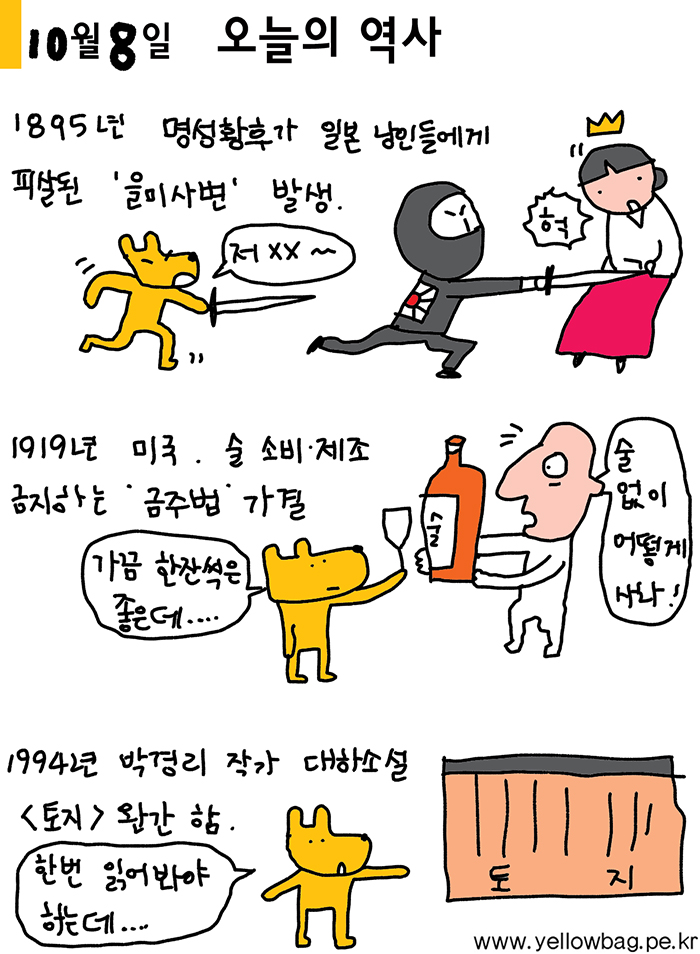 10월 8일 오늘의 역사
1895년 명성황후가 일본 낭인들에게
피살된 '을미사변' 발생.
저 XX ~
헉
1919년 미국. 술 소비·제조
금지하는 '금주법' 가결
가끔 한잔씩은
좋은데....
술
술
없이
어떻게
사라!
1994년 박경리 작가 대하소설
<토지> 완간 함.
한번 읽어봐야
하는데....
토 지
www.yellowbag.pe.kr